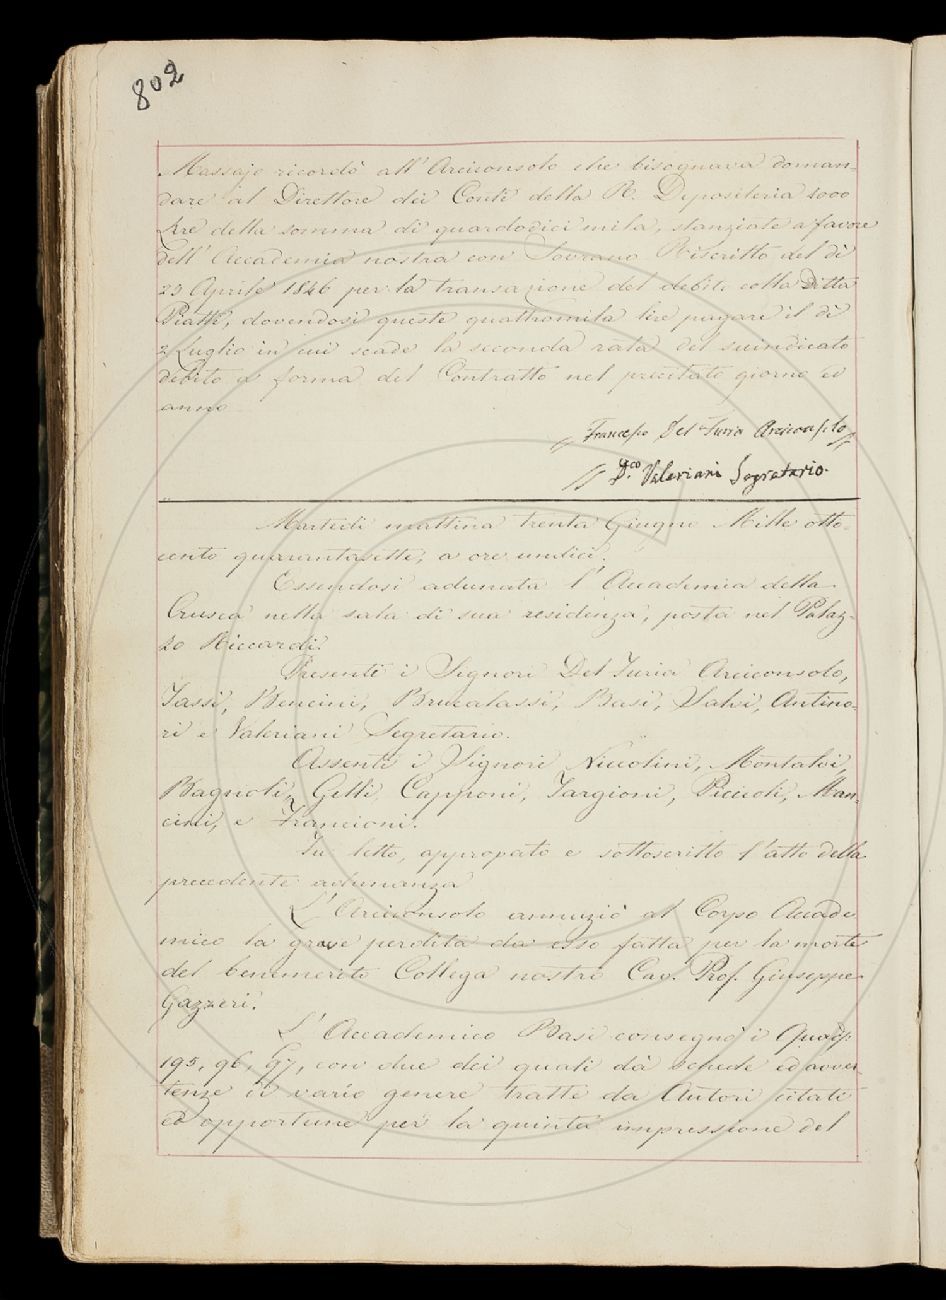 802
Massajo ricordò all'Arciconsolo che bisognava doman-
dare al Direttore dei Conti della R. Depositeria 4000
Lire della somma di quardodici mila, stanziate a favore
dell'Accademia nostra con Sovrano Rescritto del dì
29 Aprile 1846 per la transazione del debito colla Ditta
Piatti, dovendosi queste quattromila lire pagare il dì
2 Luglio in cui scade la seconda rata del suindicato
debito a forma del Contratto nel precitato giorno ed
anno
Francesco Del Furia Arciconsolo
Dco. Valeriani Segretario.
Martedì mattina trenta Giugno Mille otto-
cento quarantasette, a ore undici,
Essendosi adunata l'Accademia della
Crusca nella sala di sua residenza, posta nel Palaz-
zo Riccardi.
Presenti i Signori Del Furia Arciconsolo,
Tassi, Bencini, Brucalassi, Basi, Salvi, Antino-
ri e Valeriani Segretario.
Assenti i Signori Niccolini, Montalvi,
Bagnoli, Gelli, Capponi, Targioni, Piccioli, Man-
cini, e Francioni.
Fu letto, appropato e sottoscritto l'atto della
precedente adunanza
L'Arciconsolo annuziò al Corpo Accade
mico la grave perdita da esso fatta per la morte
del benemerito Collega nostro Cav. Prof. Giuseppe
Gazzeri.
L'Accademico Basi consegnò i Quad:
195, 96, 97, con due dei quali dà schede ed avver
tenze di vario genere tratte da Autori citati
ed opportune per la quinta impressione del